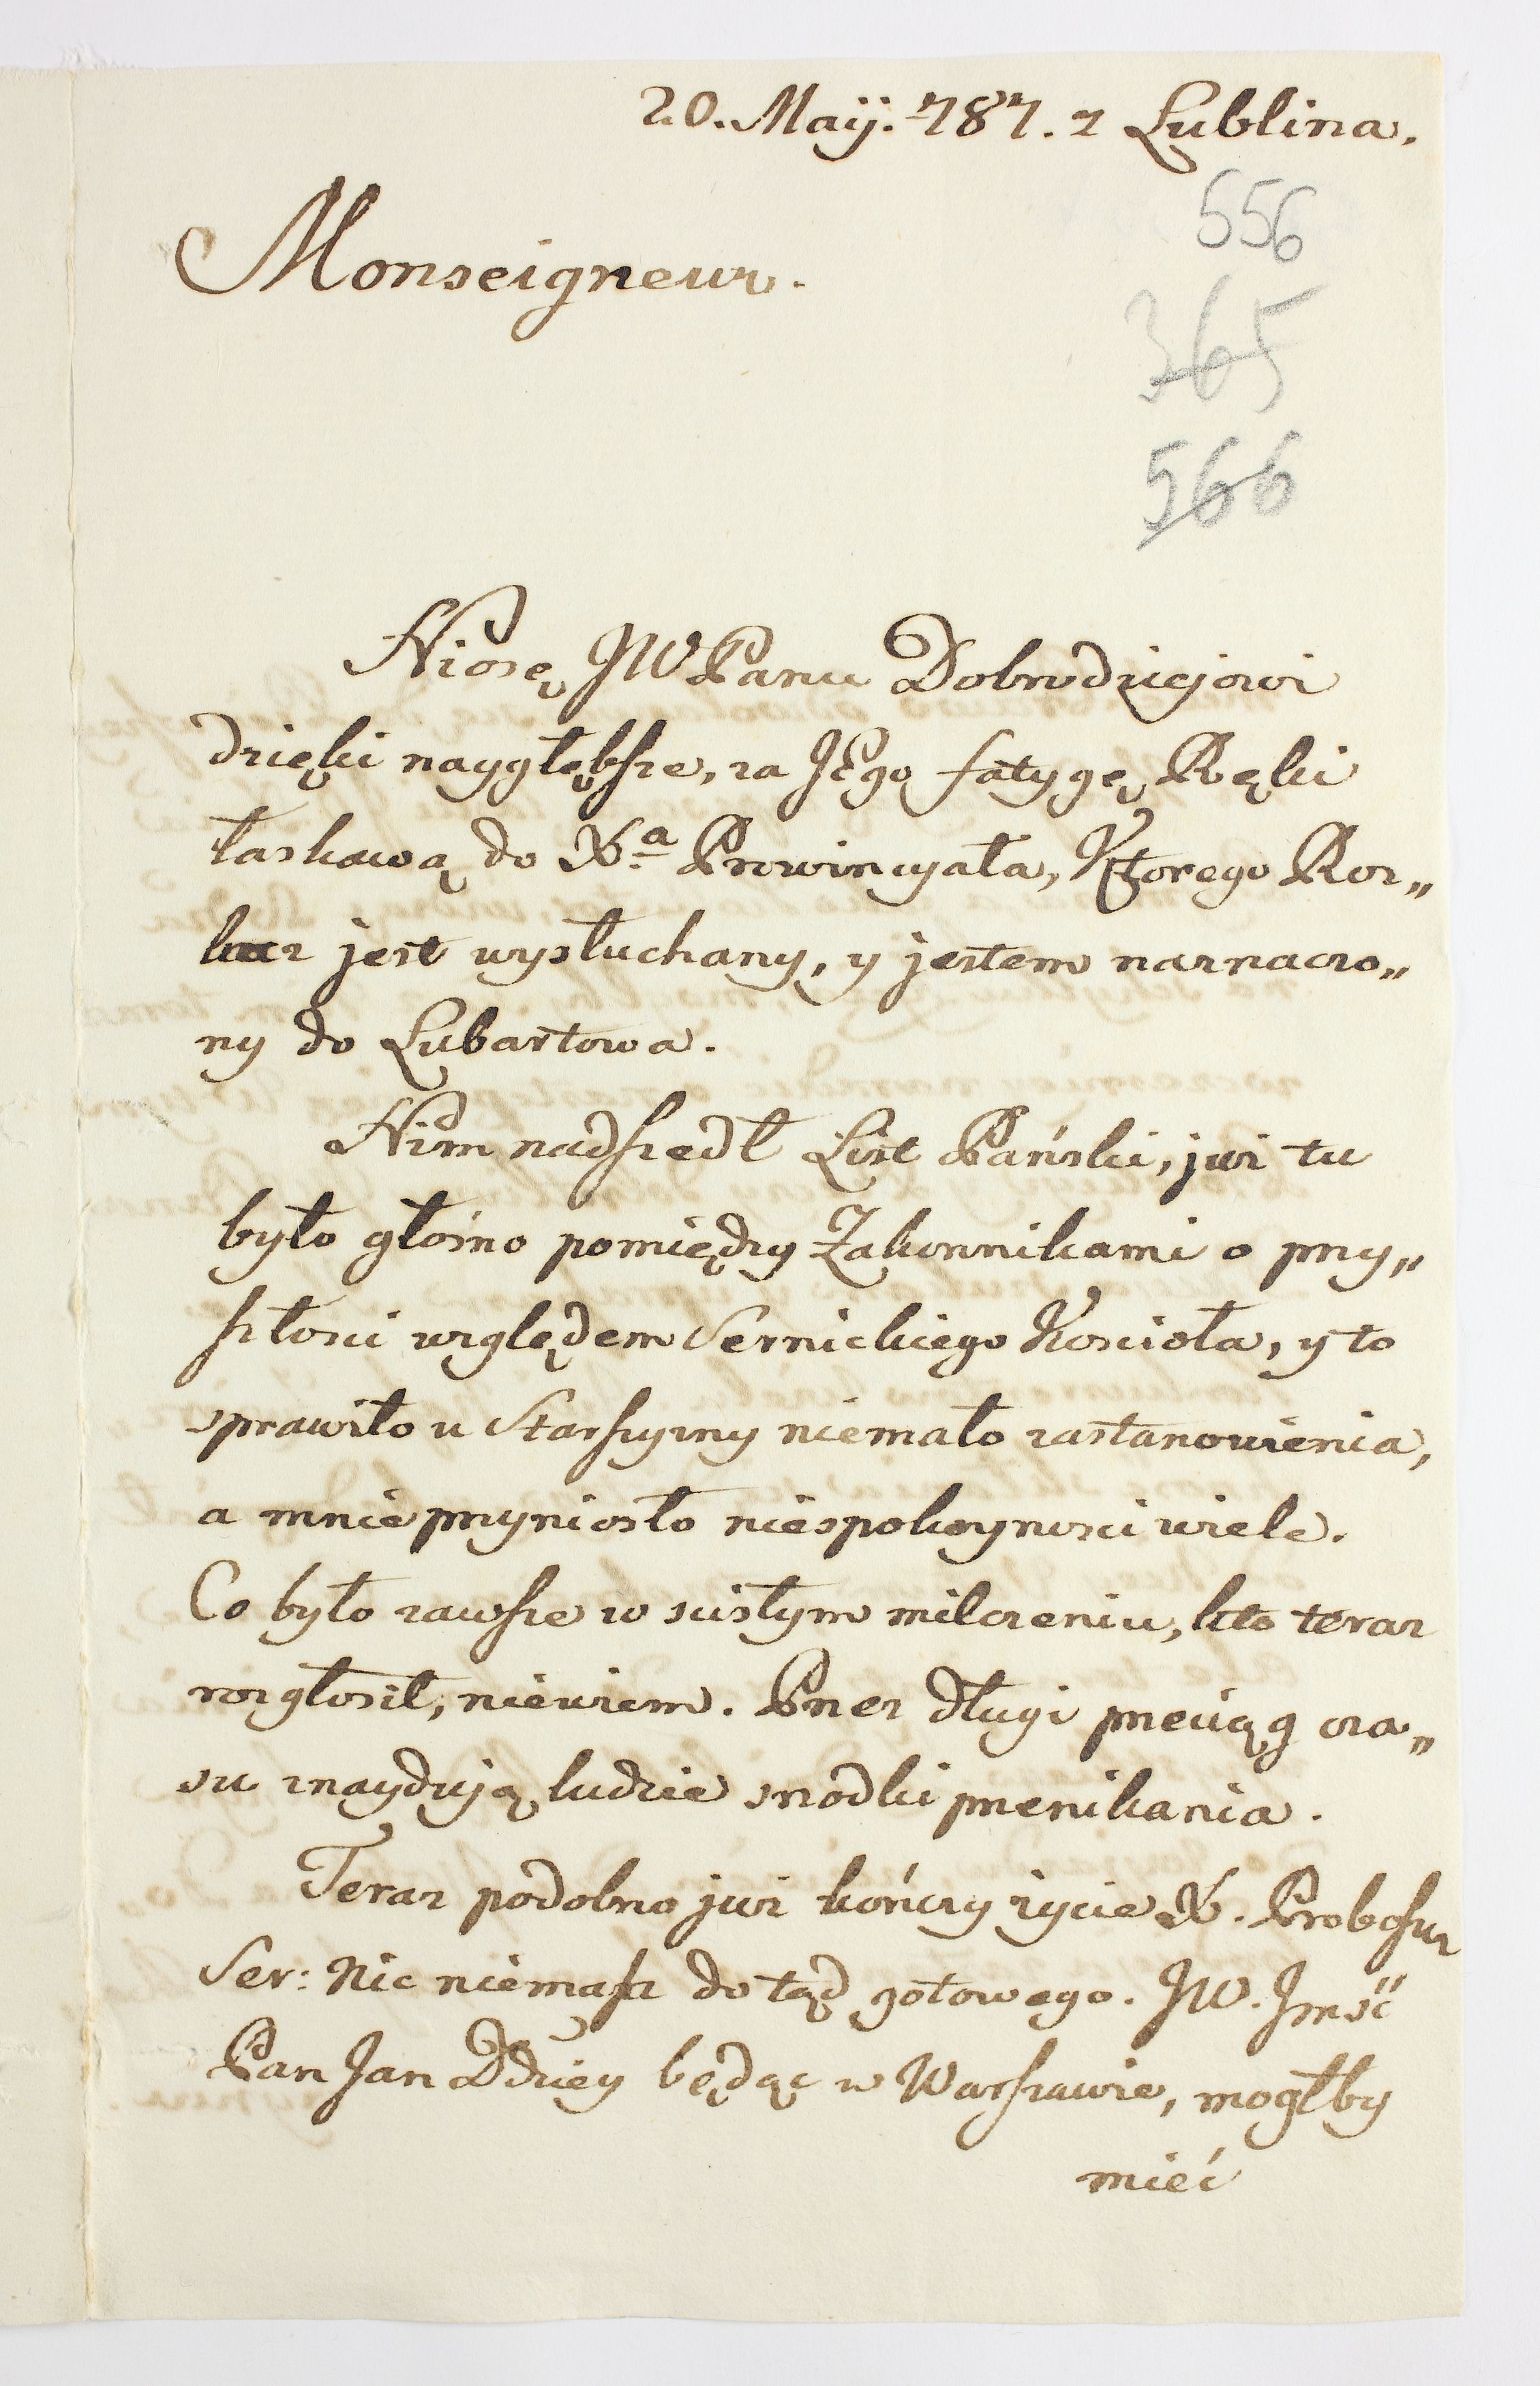 20. Maij. 787. z Lublina.
556
Monseigneur.
365
566
Niosę JW Panu Dobrodziejowi
dzięki naygłębsze, za JEgo fatygę Ręki
łaskawą do Xa Prowincyała, Ktorego Roz„
kaz jest wysłuchany, y jestem naznaczo„
ny do Lubartowa.
Nim nadszedł List Pański, już tu
było głośno pomiędzy Zakonnikami o przy„
szłosci względem Sernickiego Kościoła, y to
sprawiło u Starszyzny niemało zastanowienia,
a mnie przyniosło niespokoynosci wiele.
Co było zawsze w scisłym milczeniu, kto teraz
rozgłosił, niewiem. Przez długi przeciąg cza„
su znaydują ludzie srzodki przenikania.
Teraz podobno już kończy życie X. Proboszcz
Ser: Nic niemasz do tąd gotowego. JW. Jmść
Pan Jan DDziey będąc w Warszawie, mogłby
mieć